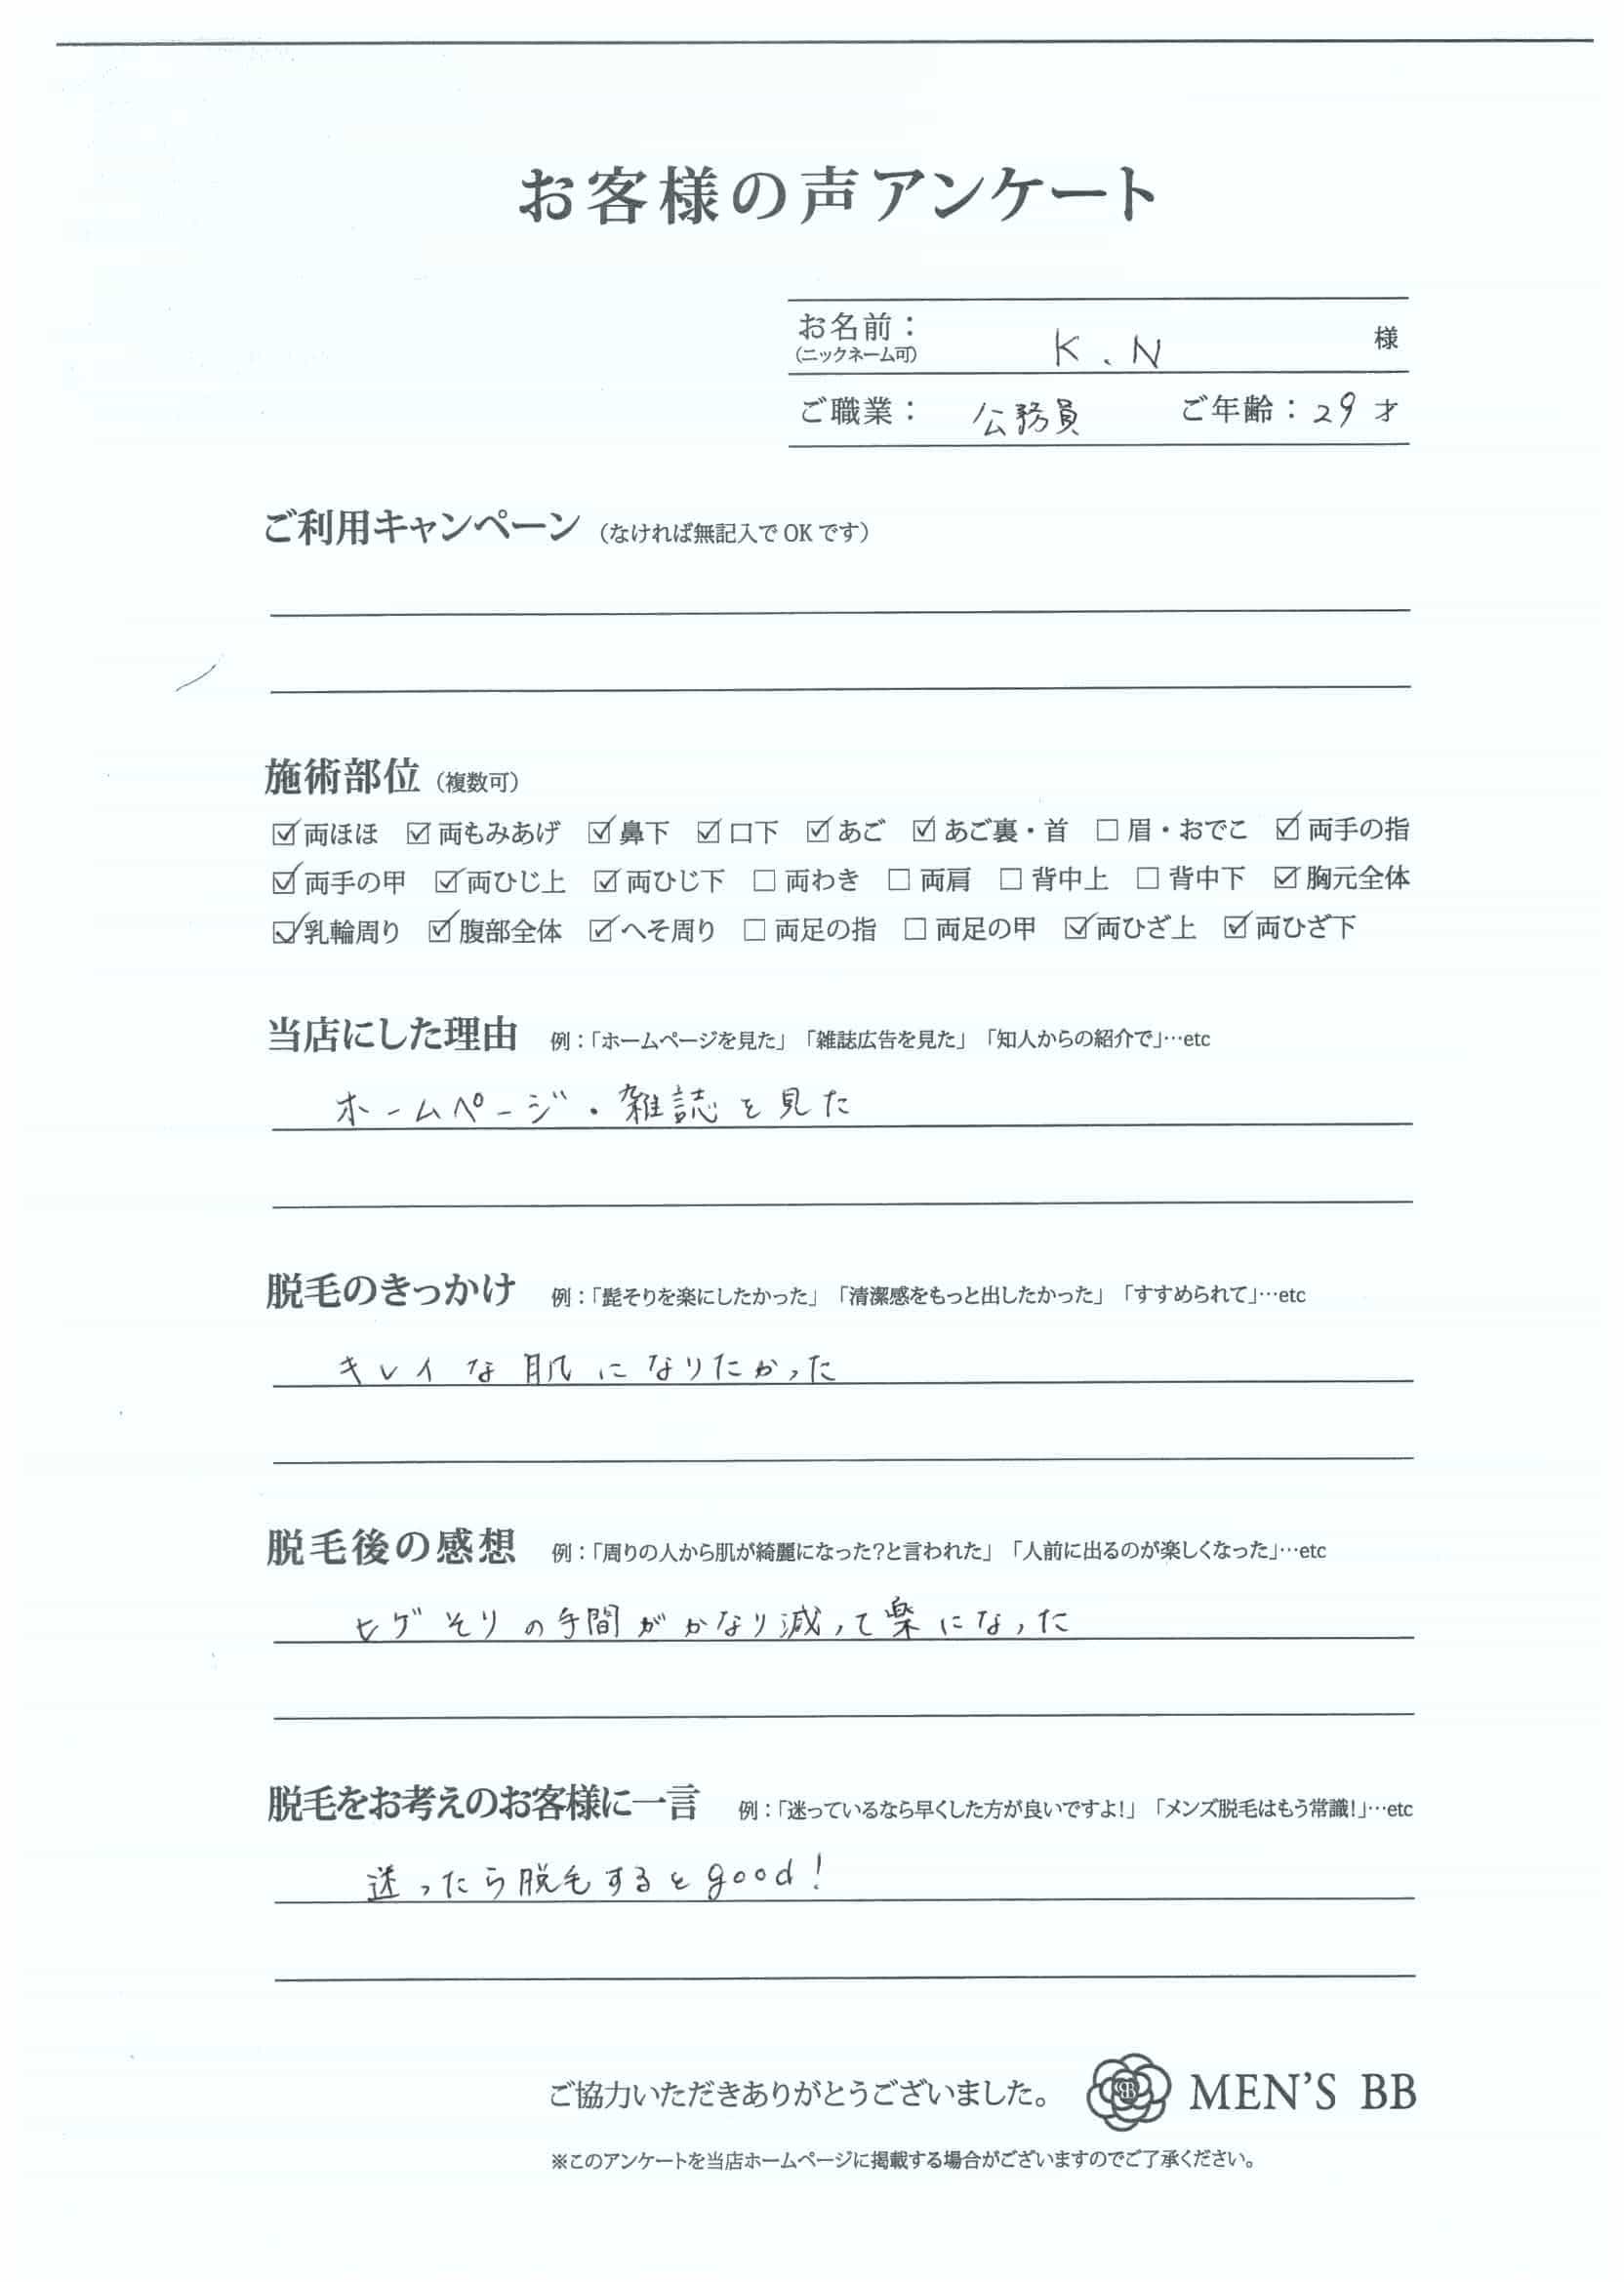 お客様の声アンケート
お名前： K.N 様
(ニックネーム可)
ご職業： 公務員 ご年齢：29才
ご利用キャンペーン （なければ無記入でOKです）
施術部位（複数可）
☑両ほほ ☑両もみあげ ☑鼻下 ☑口下 ☑あご ☑あご裏・首 □眉・おでこ ☑両手の指
☑両手の甲 ☑両ひじ上 ☑両ひじ下 □両わき □両肩 □背中上 □背中下 ☑胸元全体
☑乳輪周り ☑腹部全体 ☑へそ周り □両足の指 □両足の甲 ☑両ひざ上 ☑両ひざ下
当店にした理由 例：「ホームページを見た」「雑誌広告を見た」「知人からの紹介で」…etc
ホームページ・雑誌を見た
脱毛のきっかけ 例：「髭そりを楽にしたかった」「清潔感をもっと出したかった」「すすめられて」…etc
キレイな肌になりたかった
脱毛後の感想 例：「周りの人から肌が綺麗になった?と言われた」「人前に出るのが楽しくなった」…etc
ヒゲそりの手間がかなり減って楽になった
脱毛をお考えのお客様に一言 例：「迷っているなら早くした方が良いですよ!」「メンズ脱毛はもう常識!」…etc
迷ったら脱毛するとgood!
ご協力いただきありがとうございました。 BB MEN'S BB
※このアンケートを当店ホームページに掲載する場合がございますのでご了承ください。